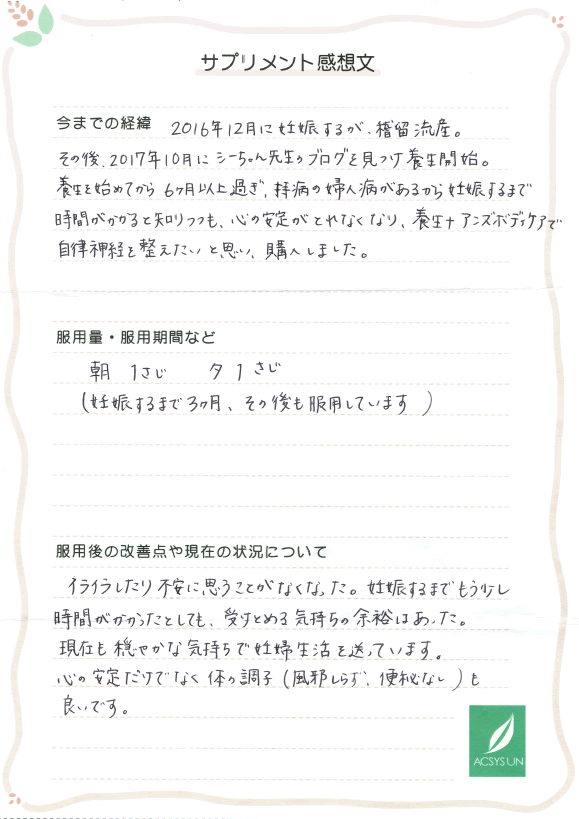 サプリメント感想文
今までの経緯 2016年12月に妊娠するが、稽留流産。
その後、2017年10月にシーちゃん先生のブログを見つけ養生開始。
養生を始めてから6ヶ月以上過ぎ、持病の婦人病があるから妊娠するまで
時間がかかると知りつつも、心の安定がとれなくなり、養生+アンズボディケアで
自律神経を整えたいと思い、購入しました。
服用量・服用期間など
朝 1さじ 夕1さじ
(妊娠するまで3ヶ月、その後も服用しています)
服用後の改善点や現在の状況について
イライラしたり不安に思うことがなくなった。妊娠するまでもう少し
時間がかかったとしても、受けとめる気持ちの余裕はあった。
現在も穏やかな気持ちで妊婦生活を送っています。
心の安定だけでなく体の調子(風邪しらず、便秘なし)も
良いです。
ACSYSUN